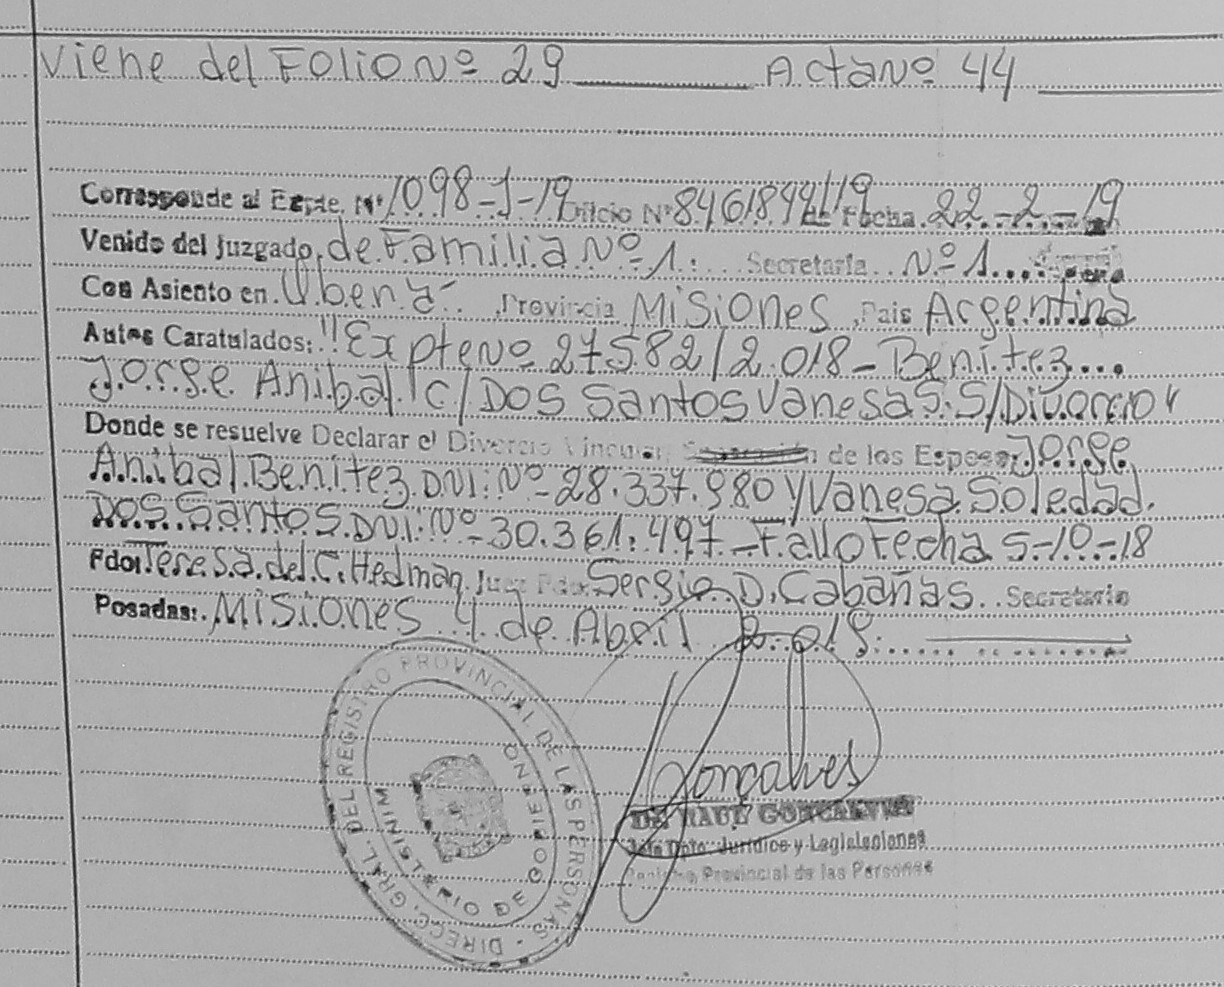 Viene del Folio Nº 29 Acta Nº 44
Corresponde al Expte. Nº 1098-J-19 Oficio Nº 8461844/19 de Fecha. 22.-2.-19
Venido del Juzgado, de Familia Nº 1. Secretaria Nº 1....
Con Asiento en. Oberá- , Provincia Misiones, Pais Argentina
Autos Caratulados: "Expte Nº 27582/2.018-Benítez...
Jorge Anibal C/ Dos Santos Vanesa S. S/Divorcio"
Donde se resuelve Declarar el Divorcio Vincular de los Esposos Jorge
Anibal Benítez DNI: Nº- 28.337.980 y Vanesa Soledad.
Dos Santos. DNI: Nº- 30.361.497.-Fallo Fecha 5-10-18
Fdo: Teresa del C. Hedman. Juez Fdo: Sergio D. Cabañas.. Secretario
Posadas:. Misiones 4 de Abril 2.019.
DIRECC. GRAL. DEL REGISTRO PROVINCIAL DE LAS PERSONAS -
MINISTERIO DE GOBIERNO
Gonçalves
DR. RAUL GONCALVES
Jefe Dpto. Jurídico y Legislaciones
Registro Provincial de las Personas